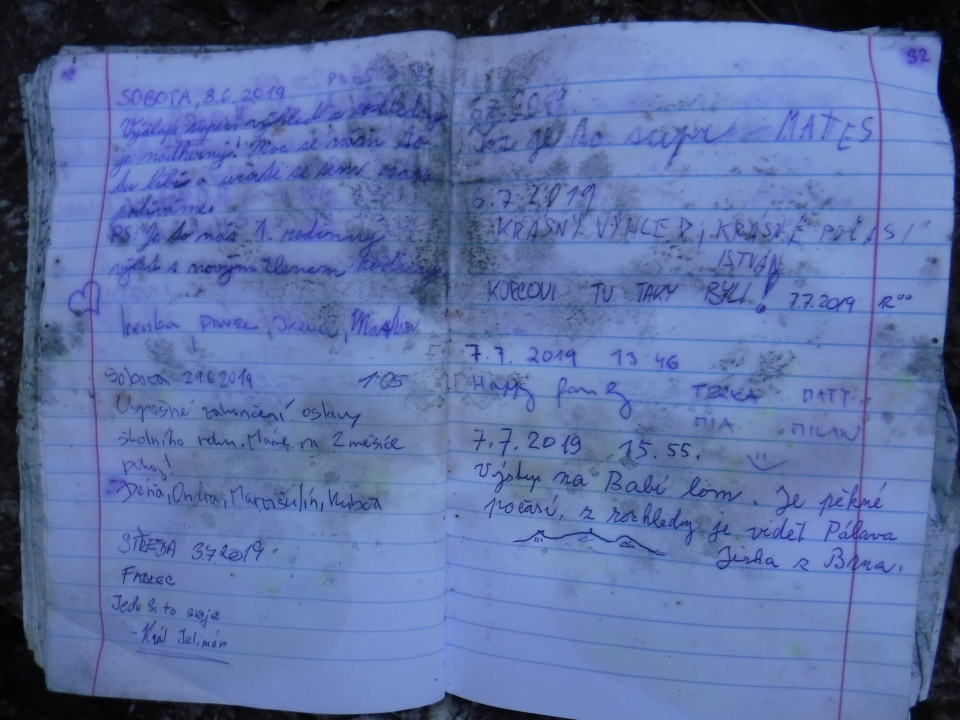 SOBOTA, 8.6.2019
výhled z rozhledny
je nádherný! Moc se nám to
tu líbí a určitě se sem
podíváme.
PS: Je to náš 1. rodinný
výlet s novým členem rodiny
Lenka PAVEL,
Sobota 29.6.2019 1:05
Úspěšné zakončení oslavy
školního roku, Máme na 2 měsíce
pokoj!
Ondra, Kubča
STŘEDA 3.7.2019
Jedu si to svoje
- Král Jelimán
32
je to super MATES
6.7.2019
KRÁSNÝ VÝHLED, KRÁSNÉ POČASÍ
ISTVÁN
TU TAKY BYLI! 7.7.2019
7.7.2019 13:46
Happy family TERKA MATT
MIA MILAN
7.7.2019 15.55.
Výstup na Babí lom. Je pěkné
počasí, z rozhledny je vidět Pálava
Jirka z Brna.